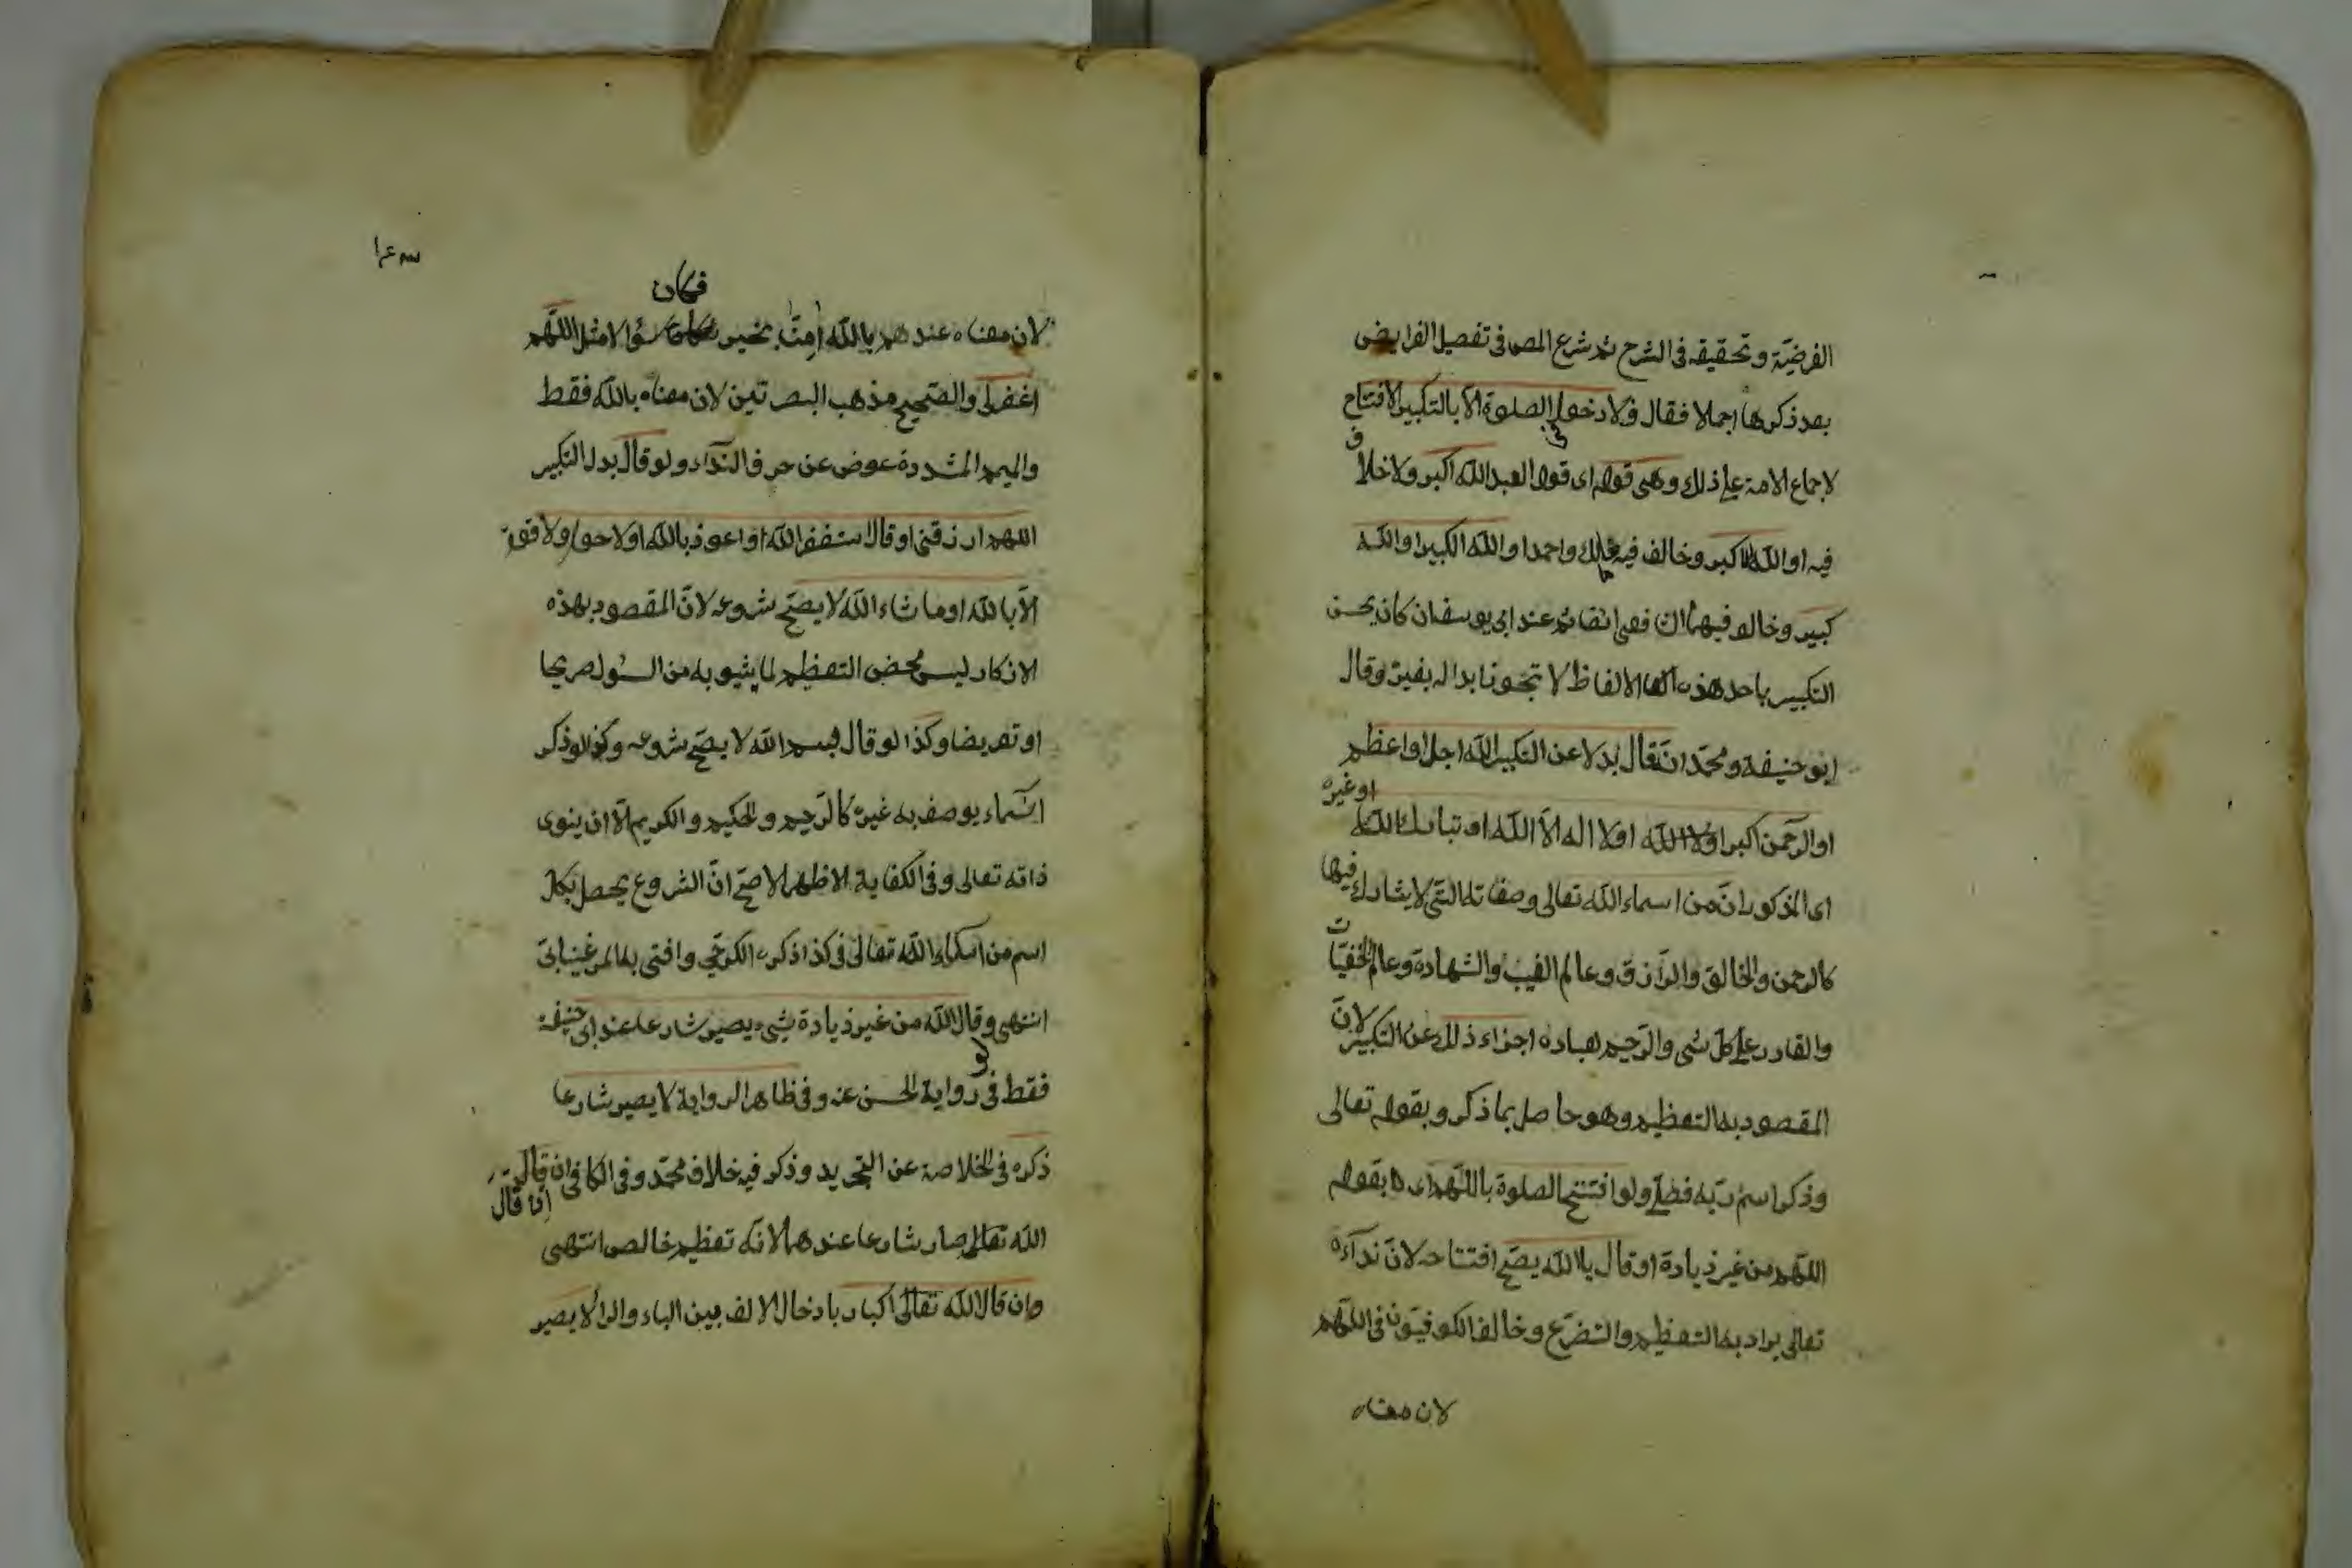 الفرضيّة وتحقيقه في الشرح ثم شرع المص في تفصيل الفرايض
بعد ذكرها اجمالا فقال ولا دخول في الصلوة الا بالتكبير الافتتاح
لاجماع الامة على ذلك وهي قوله اى قول العبد الله اكبر ولا خلاف
فيه او الله الاكبر وخالف فيه مالك واحمد او الله الكبير او الله
كبير وخالف فيهما الشافعي ثم عند ابي يوسف ان كان يحسن
التكبير باحد هذه الالفاظ لا تجوز ابداله بغيره وقال
ابو حنيفة ومحمّد ان قال بدلا عن التكبير الله اجل او اعظم
او الرّحمن اكبر او لا اله الاّ الله او تبارك الله
او غيره
اى المذكور ان من اسماء الله تعالى وصفاته التّي لا يشارك فيها
كالرحمن والخالق والرّازق وعالم الغيب والشهادة وعالم الخفيّات
والقادر على كل شى والرّحيم لعباده اجزاء ذلك عن التكبير لانّ
المقصود به التعظيم وهو حاصل بما ذكر وبقوله تعالى
وذكر اسم ربّه فصلّى ولو افتتح الصلوة باللّهم اى بقوله
اللّهم من غير زيادة او قال يا الله يصحّ افتتاحه لانّ ندآءه
تعالى يراد به التعظيم والتضرّع وخالف الكوفيّون في اللّهم
لان معناه
فكان
لان معناه عندهم يا الله امنّا بخير سؤالا مثل اللّهم
اغفرلى والصّحيح مذهب البصرتين لان معناه يا الله فقط
والميم المشددة عوض عن حرف الندآء ولو قال بدل التكبير
اللهم ارزقني او قال استغفر الله او اعوذ بالله او لا حول ولا قوة
الاّ بالله او ما شاء الله لا يصحّ شروعه لانّ المقصود بهذه
الاذكار ليس محض التعظيم لما يشوبه من السؤل صريحا
او تعريضا وكذا لو قال بسم الله لا يصحّ شروعه وكذا لو ذكر
اسماء يوصف به غيره كالرّحيم والحكيم والكريم الاّ ان ينوى
ذاته تعالى وفي الكفاية الاظهر الاصحّ انّ الشروع يحصل بكل
اسم من اسماء الله تعالى كذا ذكره الكرخي وافتى به المرغينانى
انتهى ولو قال الله من غير زيادة شيء يصير شارعا عند ابى حنيفة
فقط في رواية الحسن عنه وفي ظاهر الرواية لا يصير شارعا
ذكره في الخلاصة عن التجريد وذكر فيه خلاف محمّد وفي الكافي ان قال
ان قال
الله تعالى صار شارعا عندهما لانّه تعظيم خالص انتهى
وان قال الله تعالى اكبار بادخال الالف بين الباء والرا لا يصير